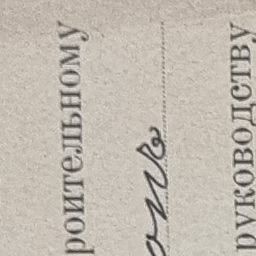 роительному
руководству